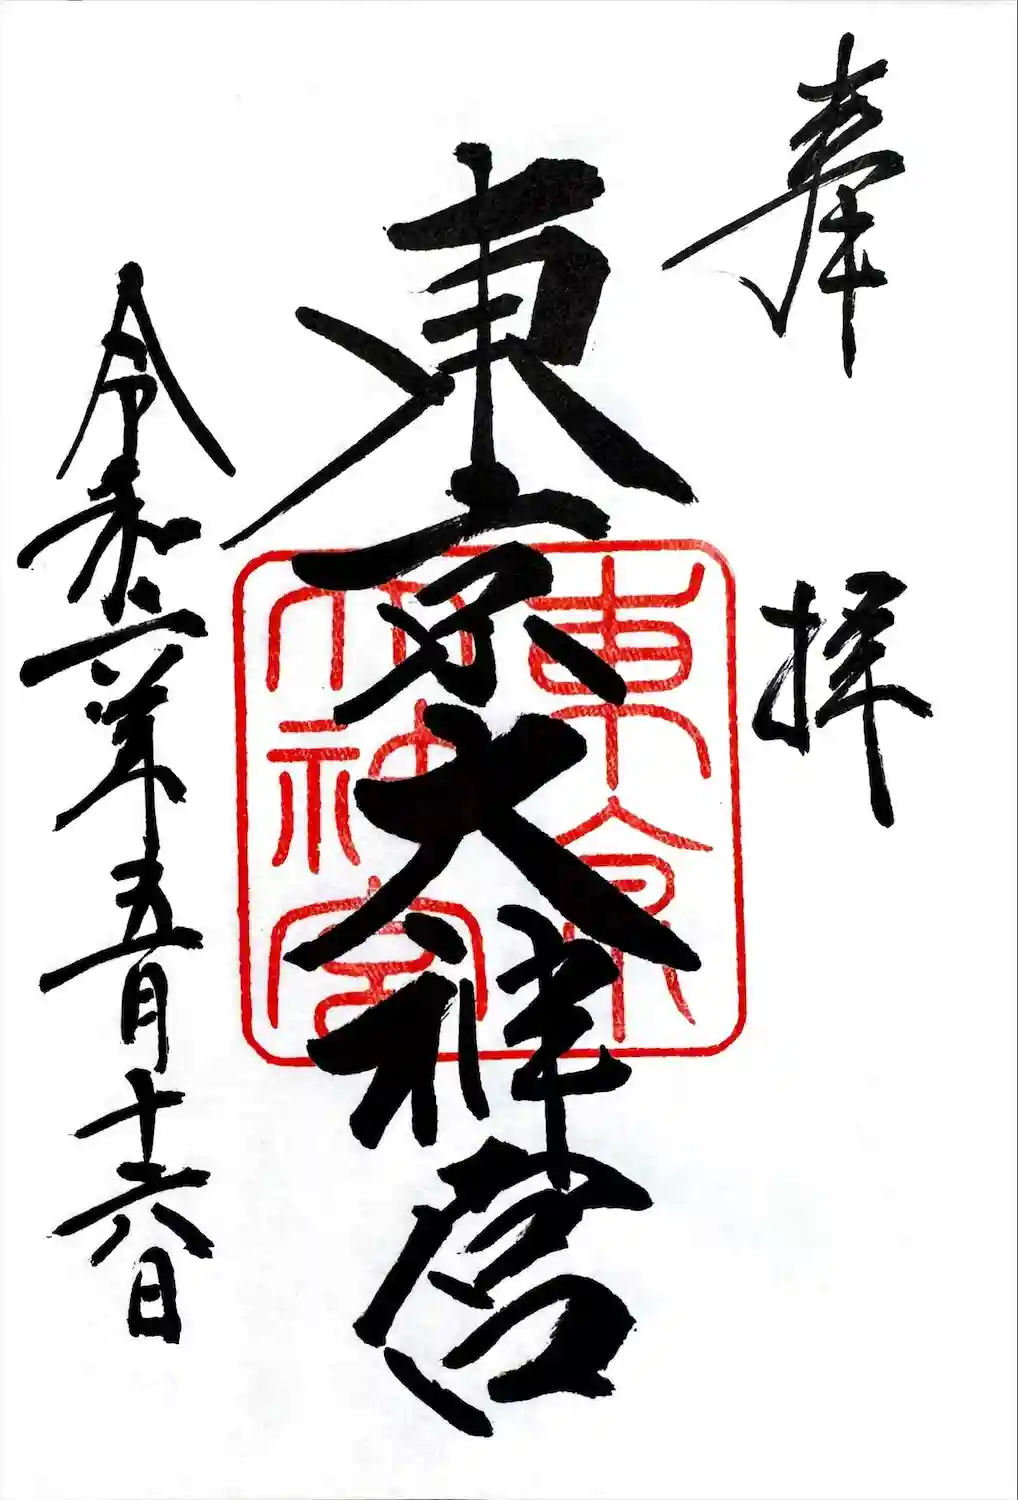 奉拝
東京大神宮
東京大神宮
令和六年五月十六日